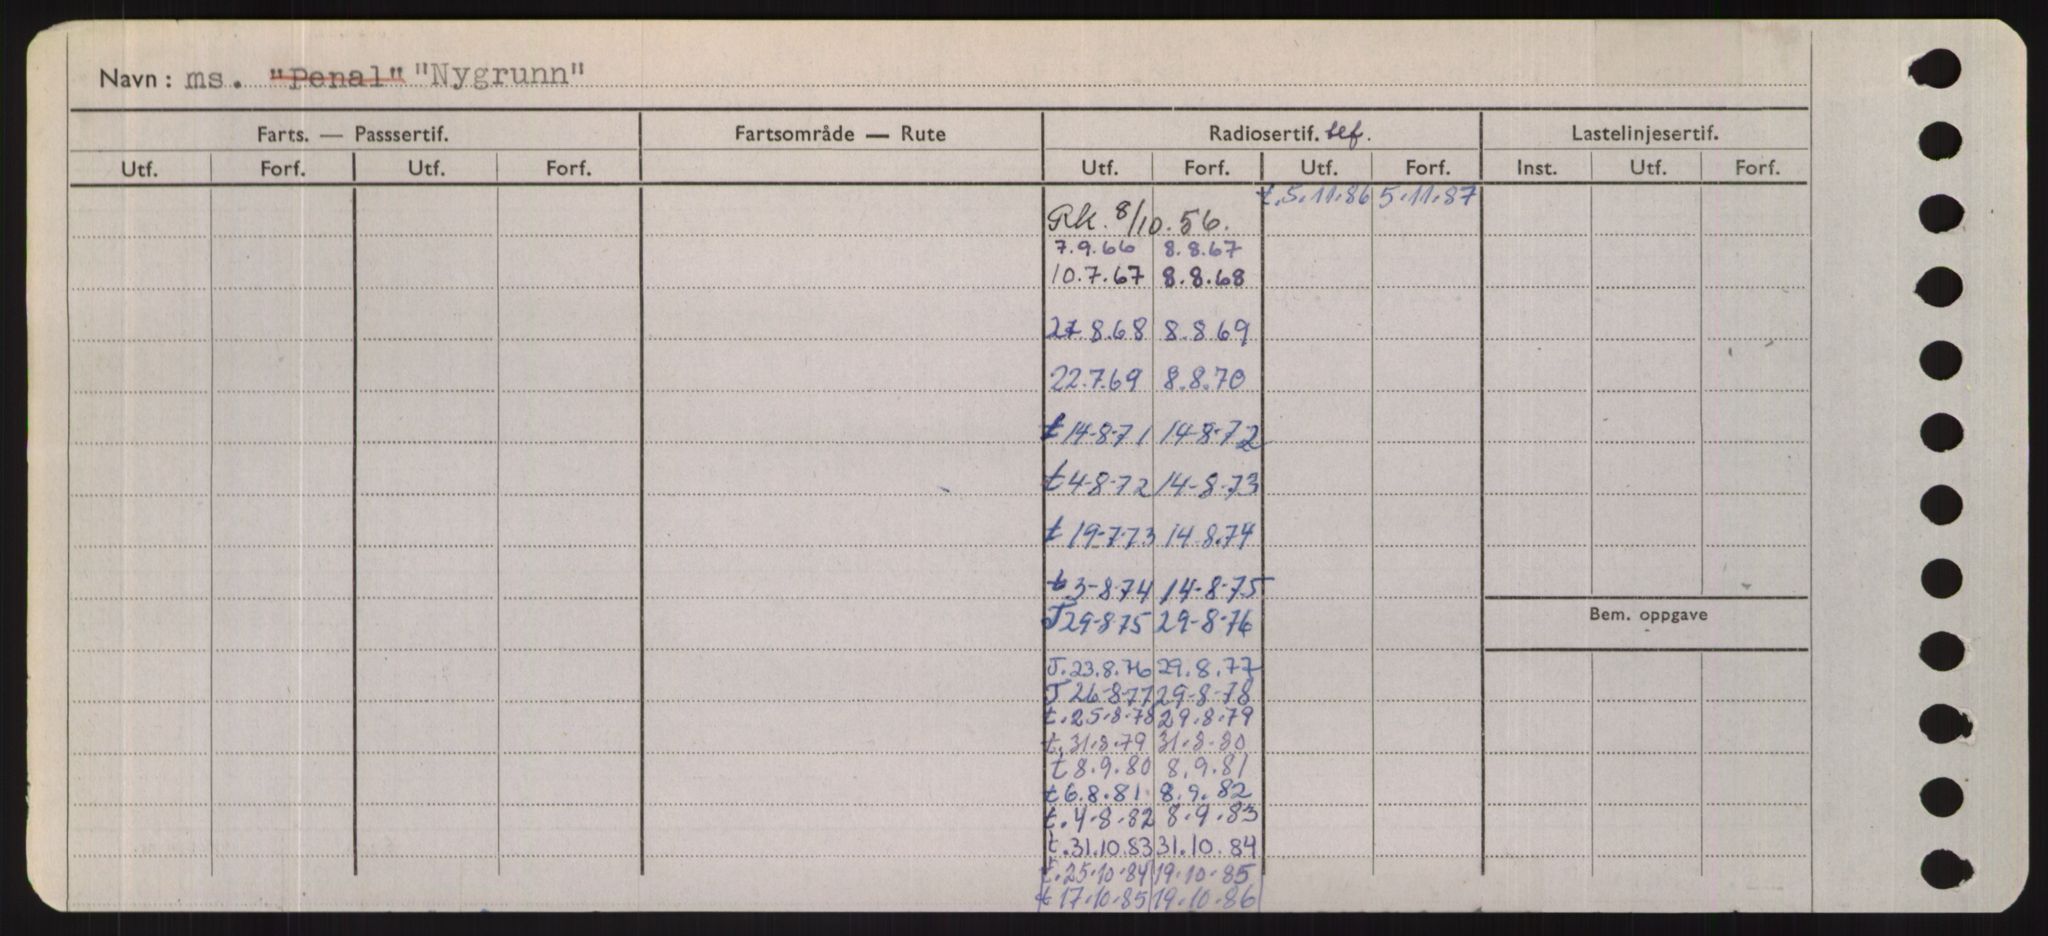 Navn: ms. "Penal" "Nygrunn"
Farts. — Passsertif. Fartsområde — Rute Radiosertif. tef. Lastelinjesertif.
Utf. Forf. Utf. Forf. Utf. Forf. Utf. Forf. Inst. Utf. Forf.
t.5.11.86 5.11.87
Rk. 8/10.56.
7.9.66 8.8.67
10.7.67 8.8.68
27.8.68 8.8.69
22.7.69 8.8.70
t 14-8-71 14-8-72
t 4-8-72 14-8-73
t 19-7-73 14-8.74
t 3-8-74 14-8-75
Bem. oppgave
T 29-8-75 29-8-76
T. 23.8.76 29.8.77
T 26-8-77 29-8-78
t. 25.8.78 29.8.79
t. 31.8.79 31.8.80
t 8.9.80 8.9.81
t 6.8.81 8.9.82
t. 4.8.82 8.9.83
t. 31.10.83 31.10.84
t. 25.10.84 19.10.85
t 17.10.85 19.10.86